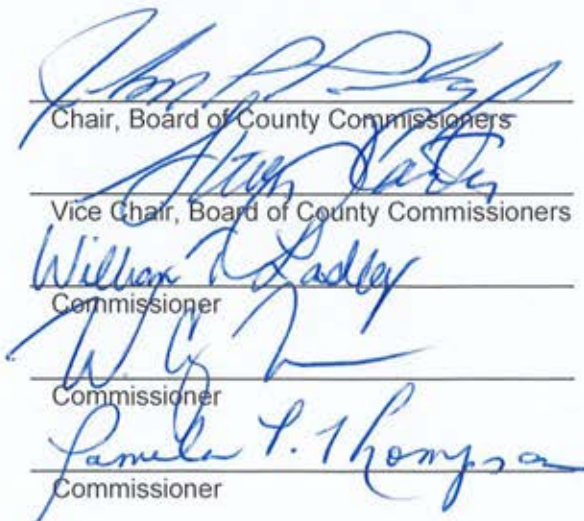 Chair, Board of County Commissioners
Vice Chair, Board of County Commissioners
William Ladley
Commissioner
W.
Commissioner
Pamela P. Thompson
Commissioner